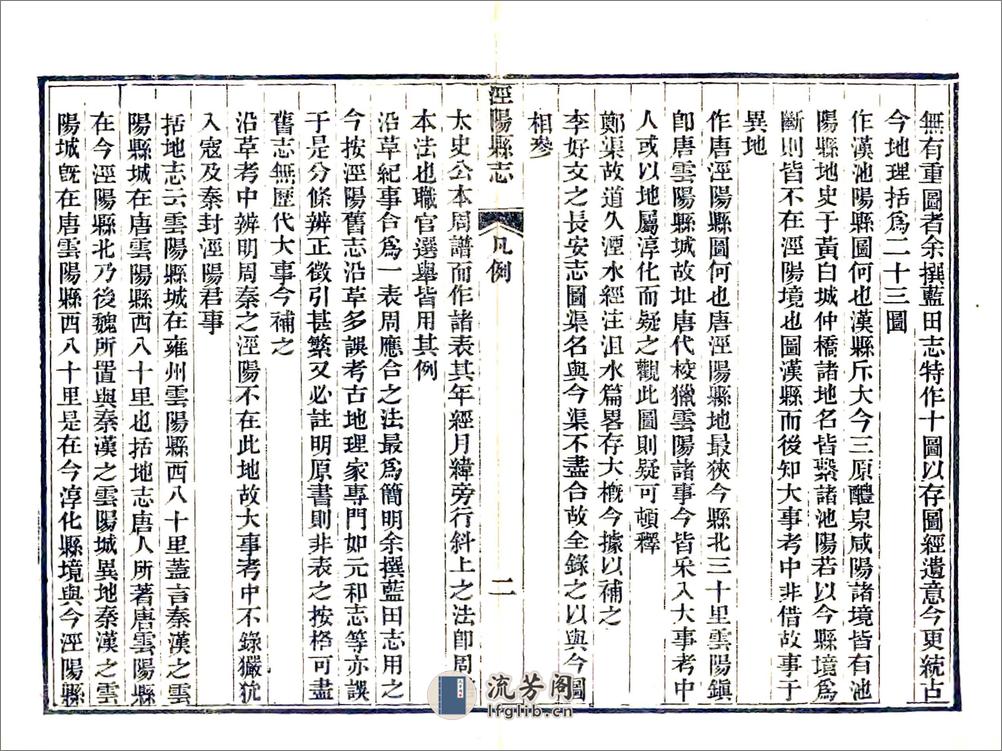 無有重圖者余撰藍田志特作十圖以存圖經遺意今更統古
今地理括爲二十三圖
作漢池陽縣圖何也漢縣斥大今三原醴泉咸陽諸境皆有池
陽縣地史于黃白城仲橋諸地名皆繫諸池陽若以今縣境爲
斷則皆不在涇陽境也圖漢縣而後知大事考中非借故事于
異地
作唐涇陽縣圖何也唐涇陽縣地最狹今縣北三十里雲陽鎮
卽唐雲陽縣城故址唐代校獵雲陽諸事今皆采入大事考中
人或以地屬淳化而疑之觀此圖則疑可頓釋
鄭渠故道久湮水經注沮水篇畧存大槪今據以補之
李好文之長安志圖渠名與今渠不盡合故全錄之以與今圖
相參
涇陽縣志
凡例
二
太史公本周譜而作諸表其年經月緯旁行斜上之法卽周
本法也職官選舉皆用其例
沿革紀事合爲一表周應合之法最爲簡明余撰藍田志用之
今按涇陽舊志沿革多誤考古地理家專門如元和志等亦誤
于是分條辨正徵引甚繁又必註明原書則非表之按格可盡
舊志無歷代大事今補之
沿革考中辨明周秦之涇陽不在此地故大事考中不錄玁狁
入寇及秦封涇陽君事
括地志云雲陽縣城在雍州雲陽縣西八十里蓋言秦漢之雲
陽縣城在唐雲陽縣西八十里也括地志唐人所著唐雲陽縣
在今涇陽縣北乃後魏所置與秦漢之雲陽城異地秦漢之雲
陽城旣在唐雲陽縣西八十里是在今淳化縣境與今涇陽縣
流芳阁
lfglib.cn